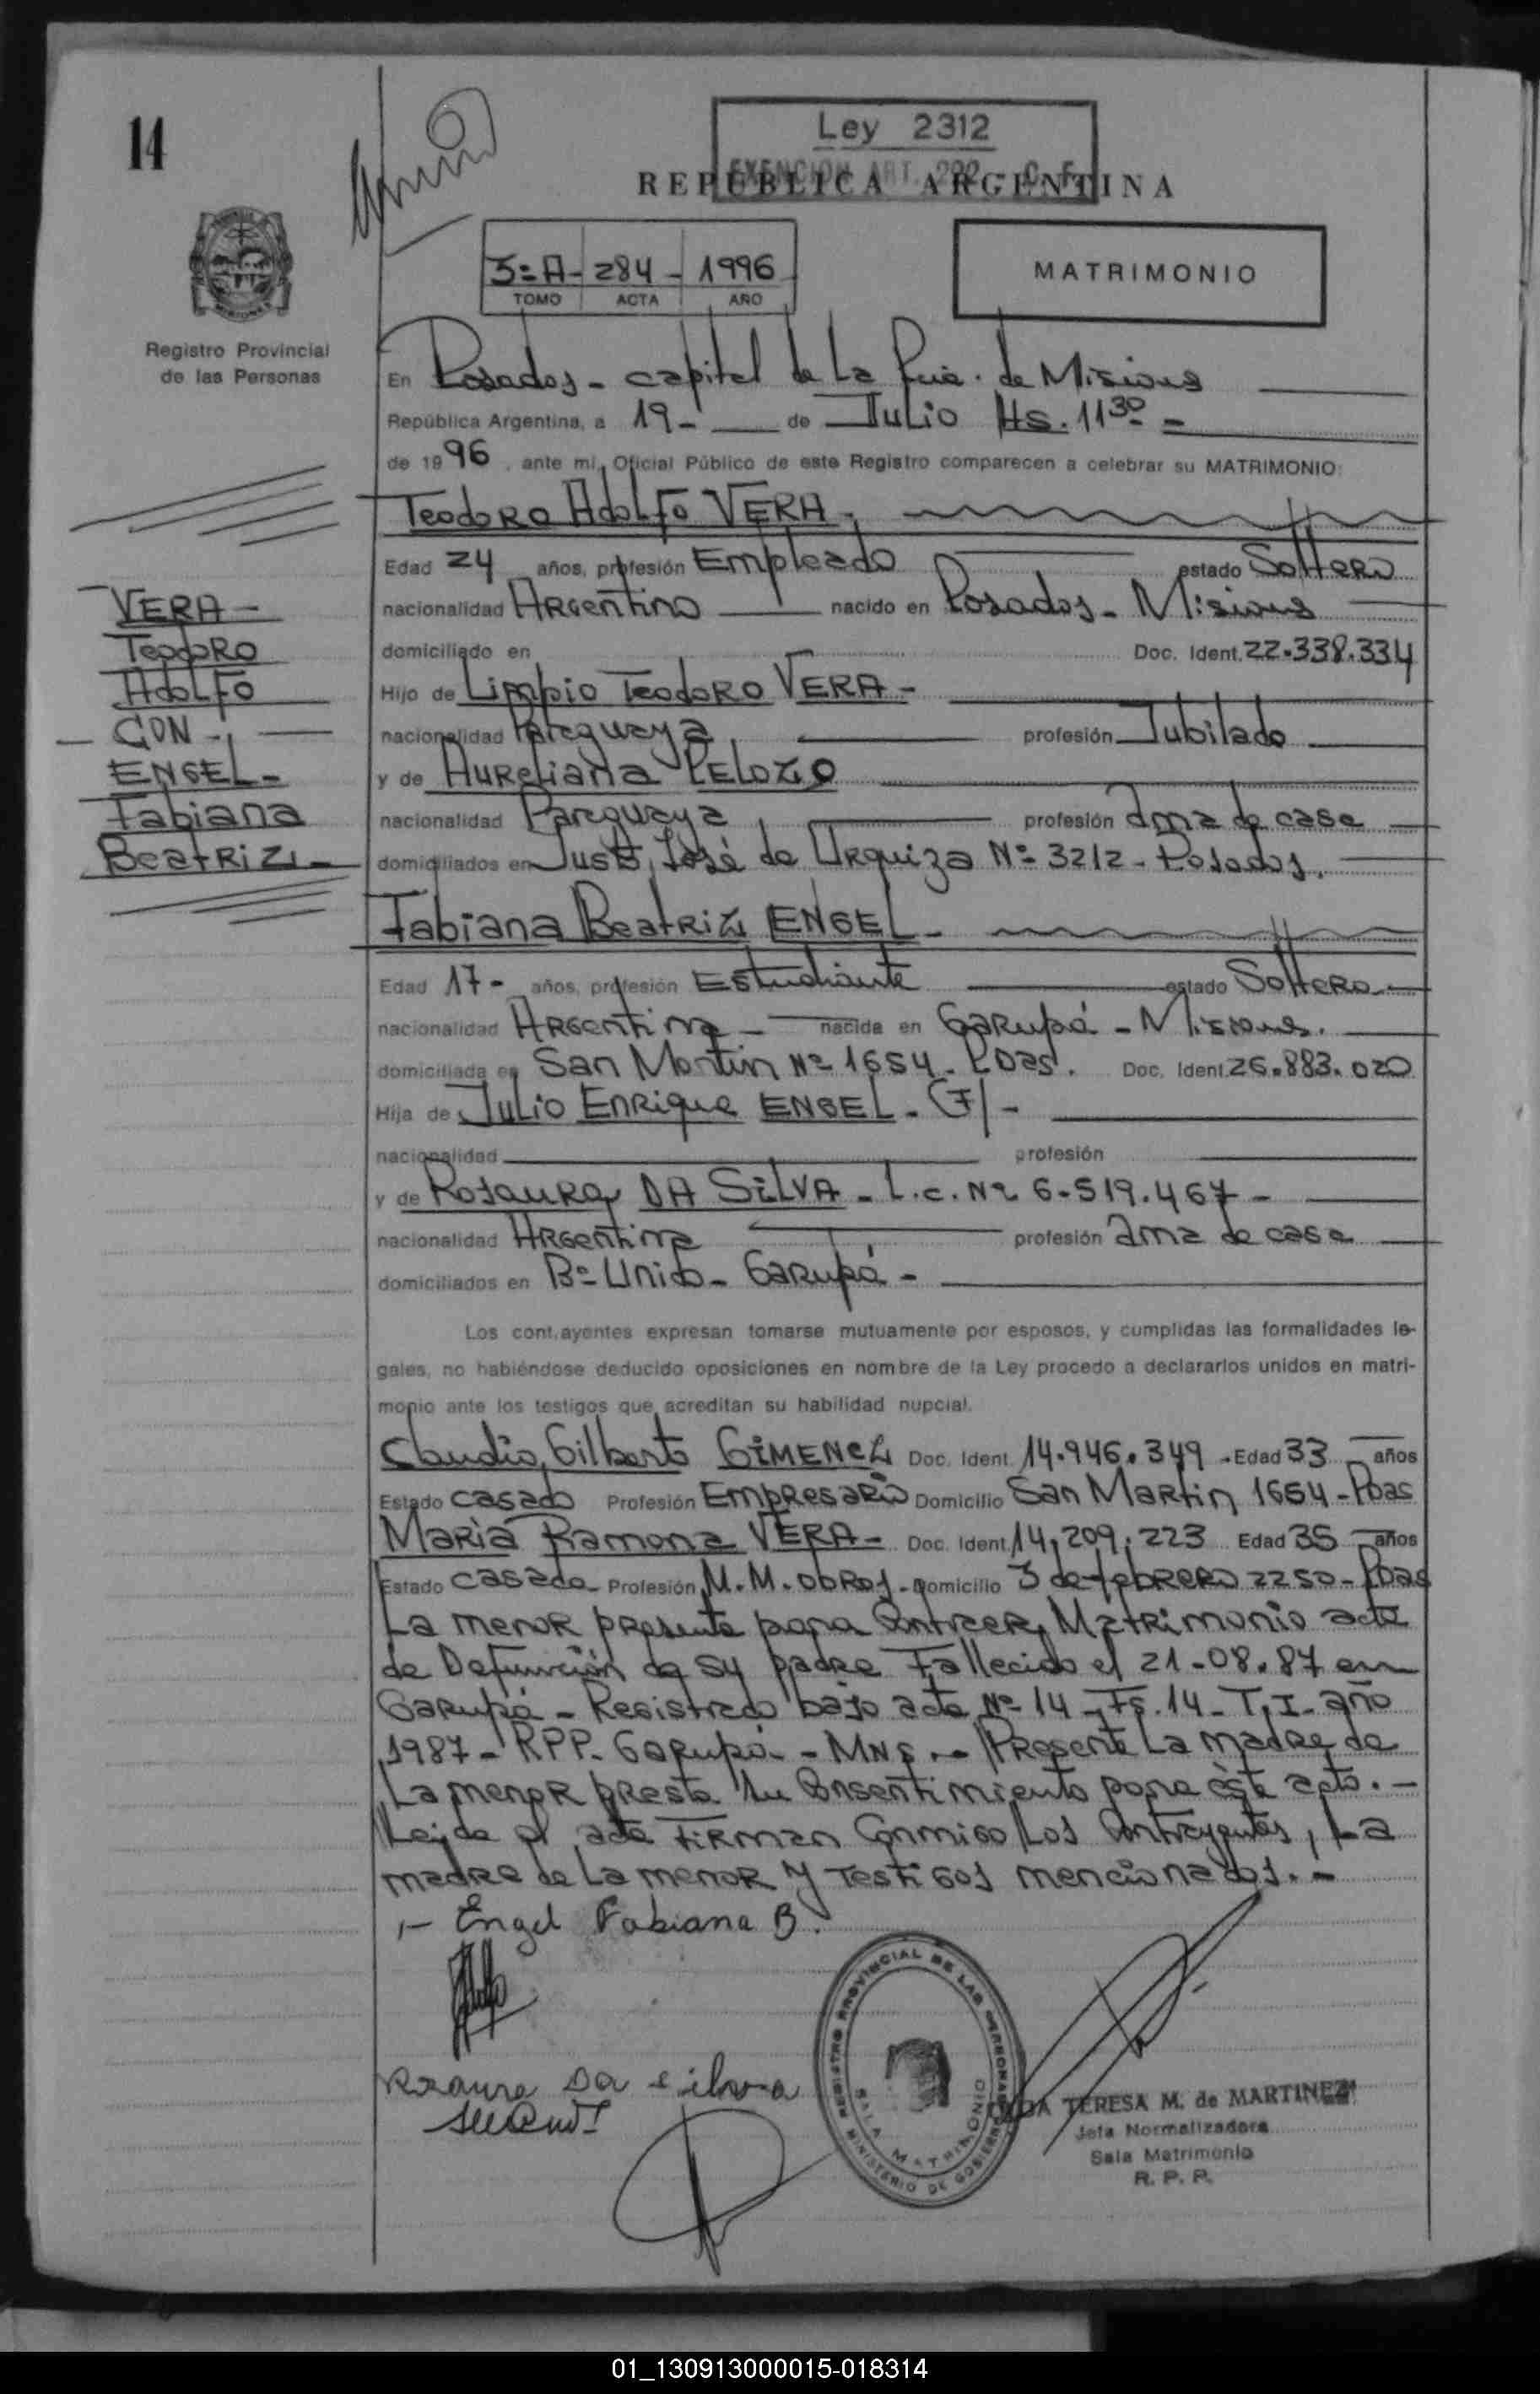 14
Ley 2312
EXENCION ART. 292 - C. F.
REPUBLICA ARGENTINA
3=A- 284 - 1996
TOMO ACTA AÑO
MATRIMONIO
Registro Provincial
de las Personas
En Posadas - capital de La Pcia. de Misiones
República Argentina, a 19- de Julio Hs. 11³⁰ =
de 1996, ante mi, Oficial Público de este Registro comparecen a celebrar su MATRIMONIO:
Teodoro Adolfo VERA.
Edad 24 años, profesión Empleado estado Soltero
nacionalidad Argentino nacido en Posadas - Misiones
domiciliado en Doc. Ident. 22.338.334
Hijo de Limpio Teodoro VERA -
nacionalidad Paraguaya profesión Jubilado
y de Aureliana PELOZO
nacionalidad Paraguaya profesión ama de casa
domiciliados en Justo José de Urquiza Nº 3212 - Posadas.
VERA -
Teodoro
Adolfo
- CON -
ENGEL -
Fabiana
Beatriz -
Fabiana Beatriz ENGEL -
Edad 17- años, profesión Estudiante estado Soltera -
nacionalidad Argentina - nacida en Garupá - Misiones.
domiciliada en San Martin Nº 1654 - Pdas. Doc. Ident. 26.883.020
Hija de Julio Enrique ENGEL - (F) -
nacionalidad profesión
y de Rosaura DA SILVA - L.C. Nº 6.519.467 -
nacionalidad Argentina profesión ama de casa
domiciliados en Bº Unido - Garupá -
Los contrayentes expresan tomarse mutuamente por esposos, y cumplidas las formalidades le-
gales, no habiéndose deducido oposiciones en nombre de la Ley procedo a declararlos unidos en matri-
monio ante los testigos que acreditan su habilidad nupcial.
Claudio Gilberto GIMENEZ Doc. Ident. 14.946.349 - Edad 33 años
Estado casado Profesión Empresario Domicilio San Martin 1654 - Pdas
Maria Ramona VERA - Doc. Ident. 14.209.223 Edad 35 años
Estado casada Profesión M.M. obras - Domicilio 3 de febrero 2250 - Pdas
La menor presenta para Contraer Matrimonio acta
de Defunción de su padre Fallecido el 21-08-87 en
Garupá - Registrado bajo acta Nº 14 - Fs. 14 - T. I - año
1987 - RPP - Garupá - MNS. - Presente La madre de
La menor presta su Consentimiento para éste acto. -
Leida el acta Firman Conmigo Los Contrayentes, La
madre de La menor y Testigos mencionados. -
,- Engel Fabiana B.
Rosaura Da silva
REGISTRO PROVINCIAL DE LAS PERSONAS
SALA MATRIMONIO
MINISTERIO DE GOBIERNO
TERESA M. de MARTINEZ
Jefa Normalizadora
Sala Matrimonio
R. P. P.
01_130913000015-018314